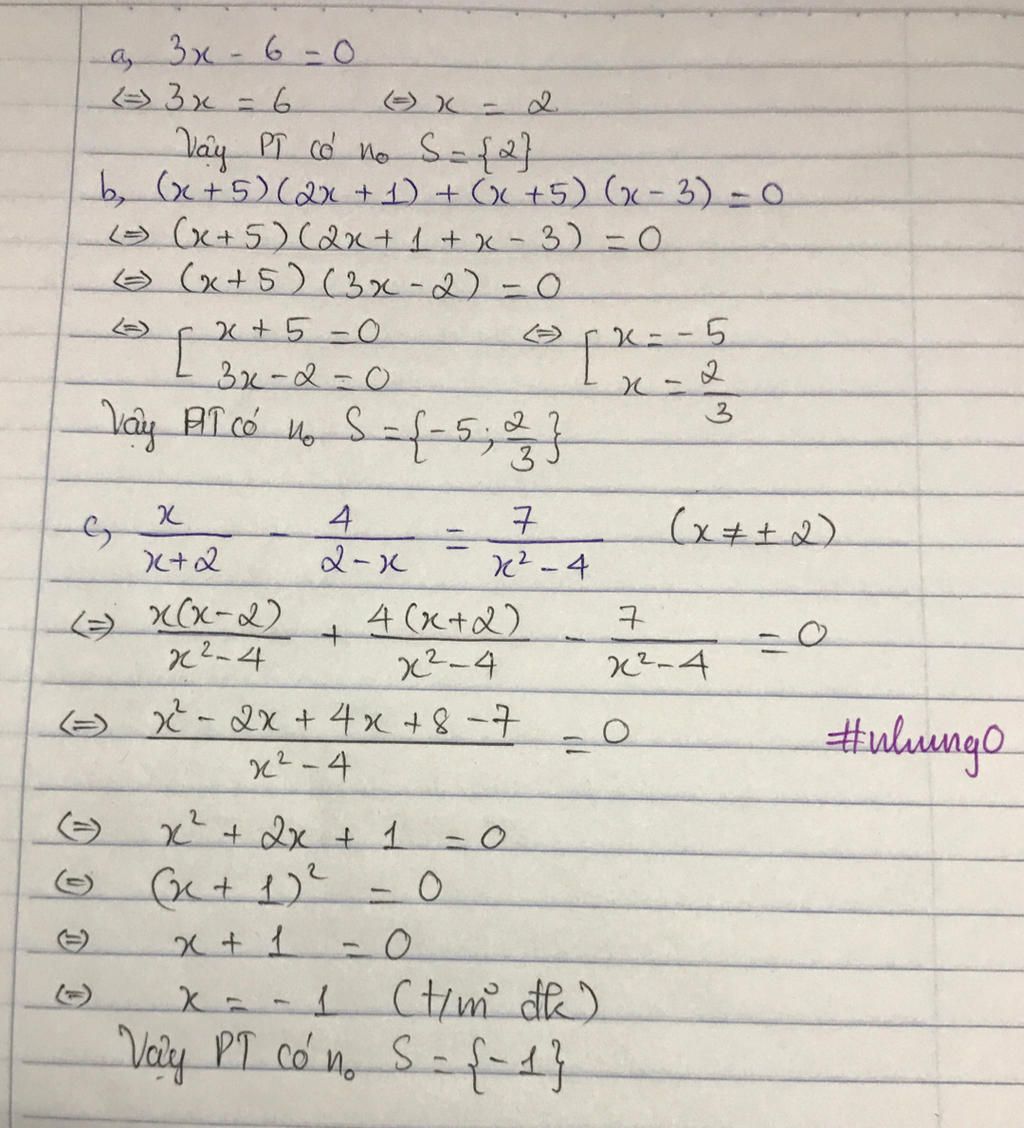 a, 3x - 6 = 0
⇔ 3x = 6 ⇔ x = 2
Vậy PT có no S = {2}
b, (x+5)(2x+1) + (x+5)(x-3) = 0
⇔ (x+5)(2x+1+x-3) = 0
⇔ (x+5)(3x-2) = 0
⇔ [ x+5 = 0 ⇔ [ x = -5
3x-2 = 0 x = 2/3
Vậy PT có no S = {-5; 2/3}
c, x/(x+2) - 4/(2-x) = 7/(x²-4) (x ≠ ± 2)
⇔ x(x-2)/(x²-4) + 4(x+2)/(x²-4) - 7/(x²-4) = 0
⇔ (x² - 2x + 4x + 8 - 7)/(x²-4) = 0 #nhung0
⇔ x² + 2x + 1 = 0
⇔ (x+1)² = 0
⇔ x + 1 = 0
⇔ x = -1 (t/m đk)
Vậy PT có no S = {-1}